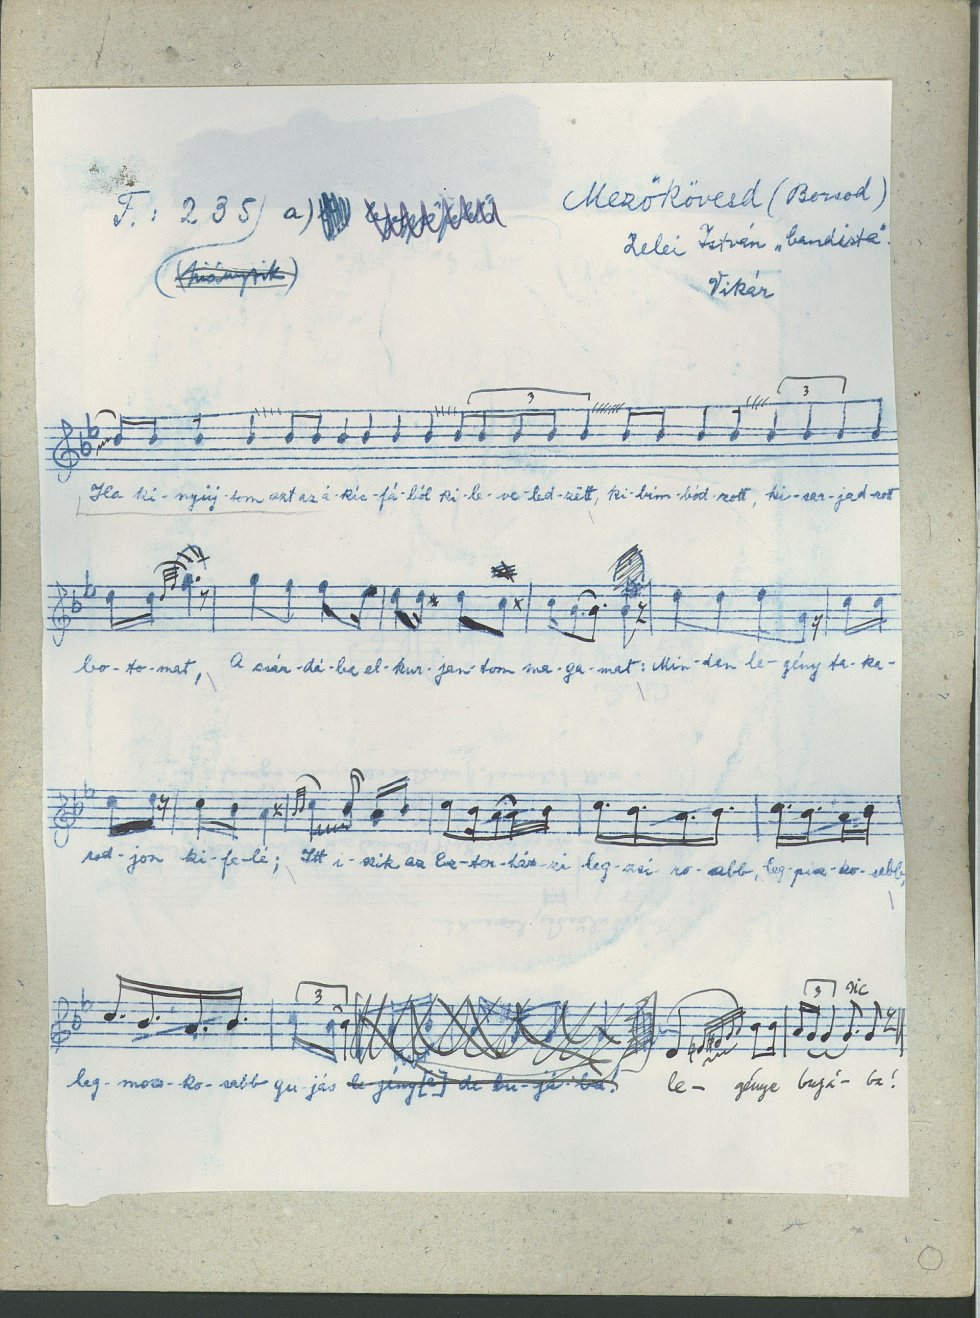 F.: 235/ a)
Mezőkövesd (Borsod)
Zelei István „bandista”.
(hiányzik)
Vikár
3 3
Ha ki-nyúj-tom azt az á-kác-fá-ból ki-le-ve-led-zett, ki-bim-bód-zott, ki-sar-jad-zott
bo-to-mat, A csár-dá-ba el-kur-jan-tom ma-ga-mat: Min-den le-gény ta-ka-
rod-jon ki-fe-lé; Itt i-szik az Esz-ter-ház-zi leg-zsí-ro-sabb, leg-pisz-ko-sebb,
3 3 sic
leg-mocs-ko-sabb gu-jás le-génye bujá-ba!